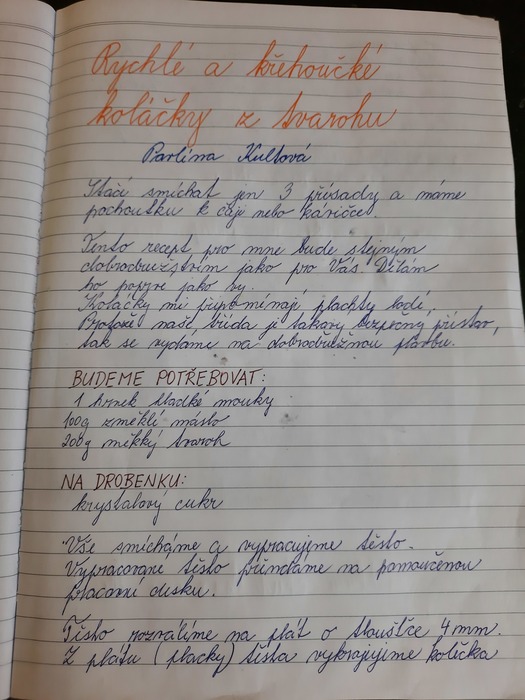 Rychlé a křehoučké
koláčky z tvarohu
Pavlína Kultová
Stačí smíchat jen 3 přísady a máme
pochoutku k čaji nebo kávičce.
Tento recept pro mne bude stejným
dobrodružstvím jako pro Vás. Dělám
ho poprve jako vy.
Koláčky mi připomínají plachty lodí,
Protože naše třída je takový bezpečný přístav,
tak se vydáme na dobrodružnou plavbu.
BUDEME POTŘEBOVAT:
1 hrnek hladké mouky
100g změklé máslo
200g měkký tvaroh
NA DROBENKU:
krystalový cukr
Vše smícháme a vypracujeme těsto.
Vypracované těsto přindáme na pomoučenou
pracovní desku.
Těsto rozválíme na plát o tloušťce 4mm.
Z plátu (placky) těsta vykrajujeme kolečka